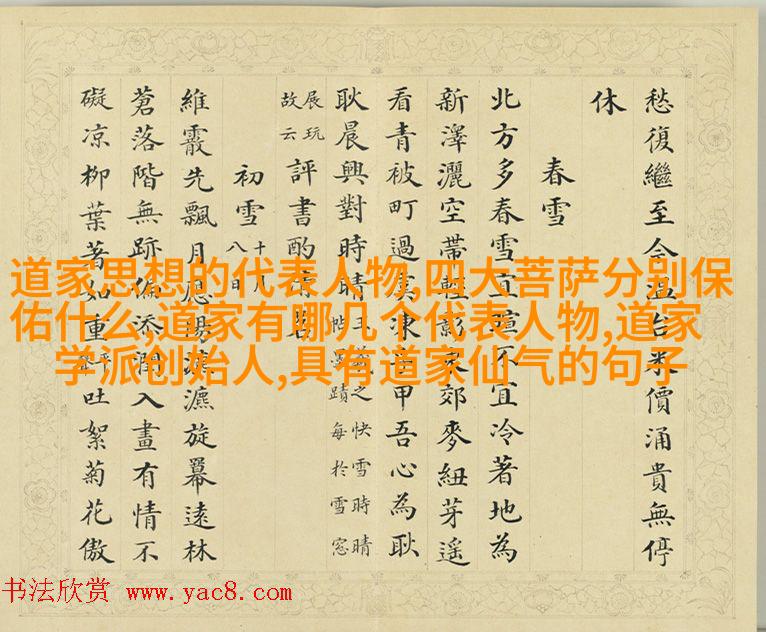 愁復繼至今溫台米價涌貴無停
休
春雪
北方多春雪宜暄不宜冷著地為
新澤灑空帶輕郊麥紐芽遙
看青被町過凍甲吾心為耿
耿晨興對時晴之快雪時晴蹟每於雪窓
展玩故云評書酌
初雪
維霰先飄月應瀌旋羃遠林
蒼落階無跡偏添潤入畫有情不
礙凉柳葉著如重吐絮菊花傲
道家思想的代表人物,四大菩萨分别保
佑什么,道家有哪几个代表人物,道家
学派创始人,具有道家仙气的句子
书法欣赏 www.yac8.com